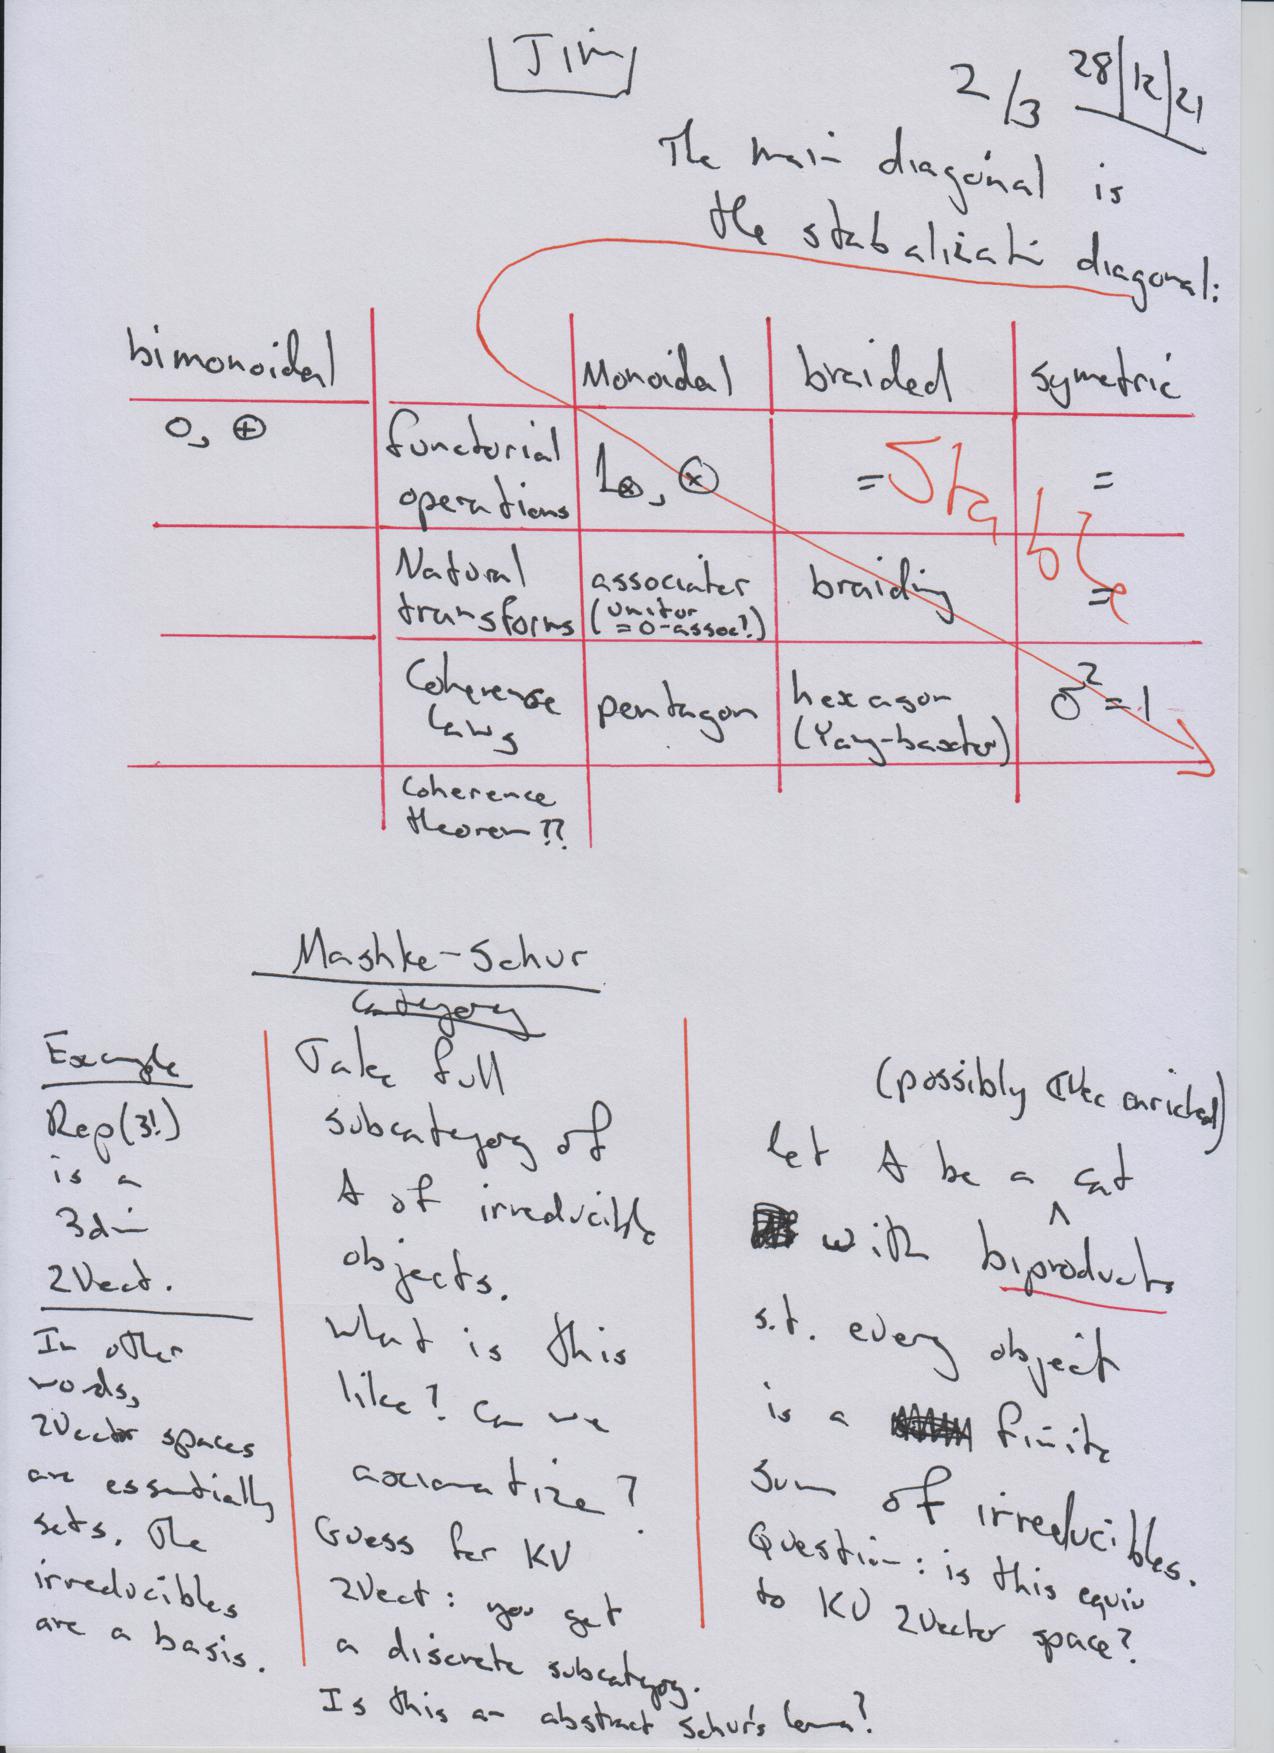 Jim
2/3 28/12/21
The main diagonal is
the stabalizati diagonal:
bimonoidal Monoidal braided symetric
0, ⊕ functorial operations 1⊗, ⊗ = =
Stable
Natural transforms associater (unitor = 0-assoc?) braiding =
Coherense Laws pentagon hexagon (Yang-baxter) σ² = 1
Coherence
theorem??
Mashke-Schur
Category
Example
Rep(3!)
is a
3dim
2Vect.
In other
words,
2Vector spaces
are essentially
sets. The
irreducibles
are a basis.
Take full
subcategory of
A of irreducible
objects.
What is this
like? Can we
axiomatize?
Guess for KV
2Vect: you get
a discrete subcategory.
Is this an abstract Schur's lemma?
(possibly ℂVec enriched)
let A be a cat
with biproducts
s.t. every object
is a finite
sum of irreducibles.
Question: is this equiv
to KV 2Vector space?